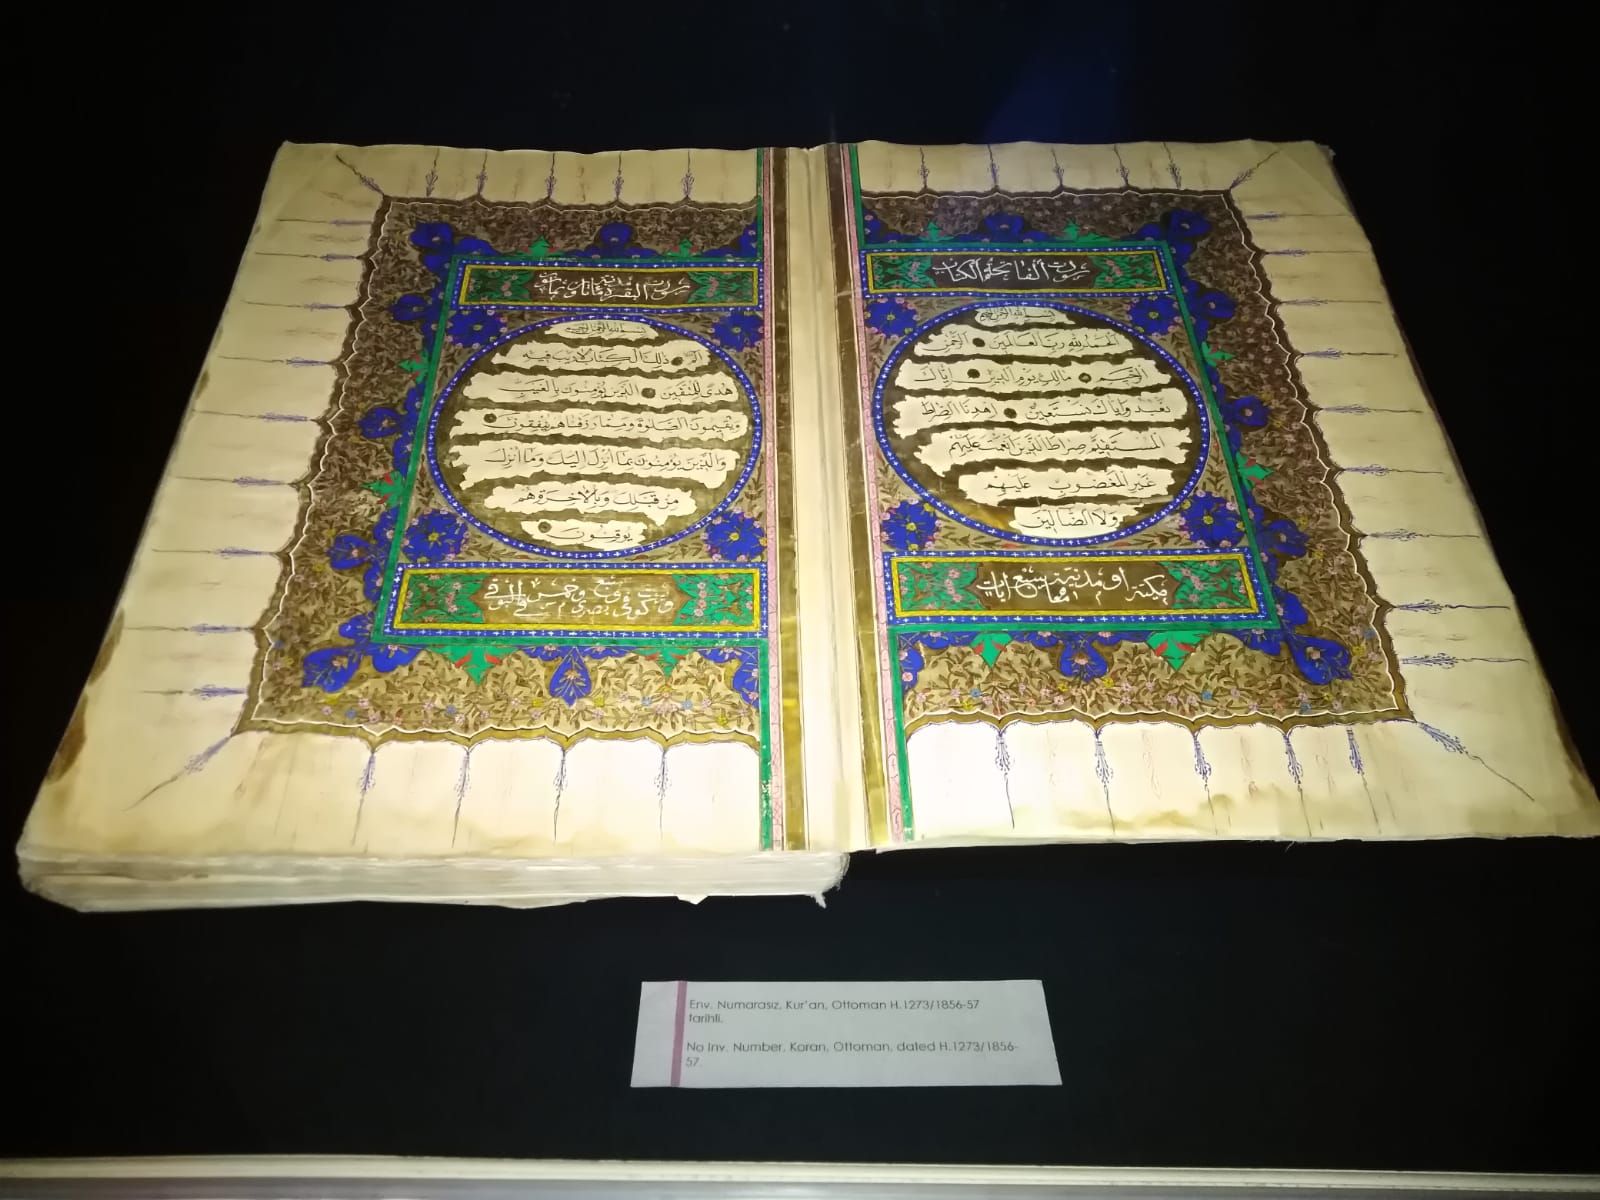 سورة الفاتحة الكتاب
بسم الله الرحمن الرحيم
الحمد لله رب العالمين الرحمن
الرحيم مالك يوم الدين اياك
نعبد واياك نستعين اهدنا الصراط
المستقيم صراط الذين انعمت عليهم
غير المغضوب عليهم
ولا الضالين
مكية او مدنية وهى سبع ايات
سورة البقرة مائتان
بسم الله الرحمن الرحيم
الم ذلك الكتاب لا ريب فيه
هدى للمتقين الذين يؤمنون بالغيب
ويقيمون الصلوة ومما رزقناهم ينفقون
والذين يؤمنون بما انزل اليك وما انزل
من قبلك وبالاخرة هم
يوقنون
Env. Numarasız, Kur'an, Ottoman H.1273/1856-57
tarihli.
No Inv. Number, Koran, Ottoman, dated H.1273/1856-
57.